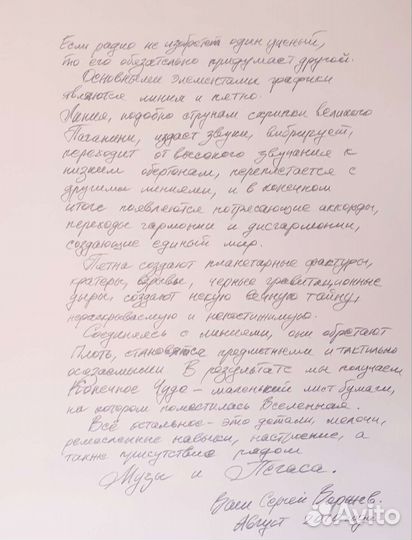 Если радио не изобретет один ученый,
то его обязательно придумает другой.
Основными элементами графики
являются линия и пятно.
Линия, подобно струнам скрипки великого
Паганини, издает звуки, вибрирует,
переходит от высокого звучания к
низким обертонам, переплетается с
другими линиями, и в конечном
итоге появляются потрясающие аккорды,
переходы гармонии и дисгармонии,
создающие единый мир.
Пятна создают планетарные фактуры,
кратеры, взрывы, черные гравитационные
дыры, создают некую вечную тайну,
нераскрываемую и непостижимую.
Соединяясь с линиями, они обретают
Плоть, становятся предметными и тактильно
осязаемыми. В результате мы получаем
Конечное Чудо - маленький лист бумаги,
на котором поместилась Вселенная.
Всё остальное - это детали, мелочи,
ремесленные навыки, настроение, а
также присутствие рядом
Музы и Пегаса.
Ваш Сергей
Август
Avito